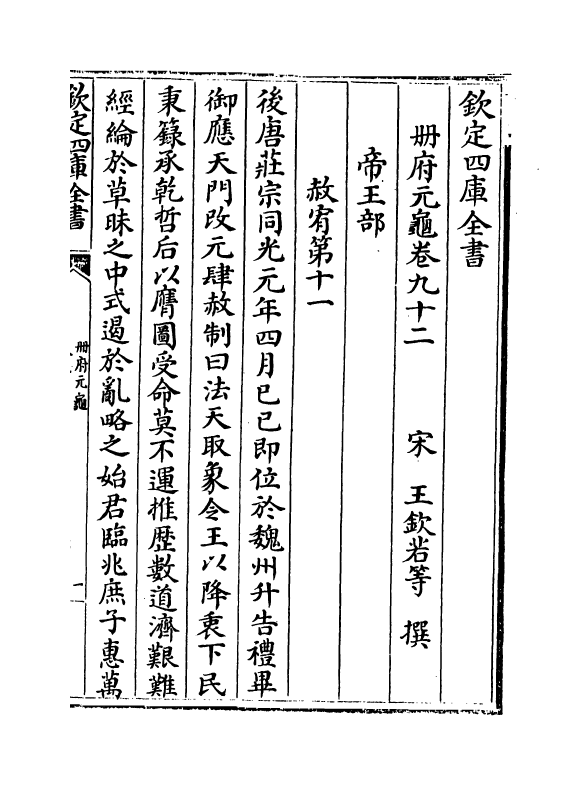 欽定四庫全書
冊府元龜卷九十二　宋　王欽若等　撰
帝王部
赦宥第十一
後唐莊宗同光元年四月已已即位於魏州升告禮畢
御應天門改元肆赦制曰法天取象令王以降衷下民
秉籙承乾哲后以膺圖受命莫不運推歴數道濟艱難
經綸於草昧之中式遏於亂略之始君臨兆庶子惠萬
欽定四庫全書
冊府元龜
一